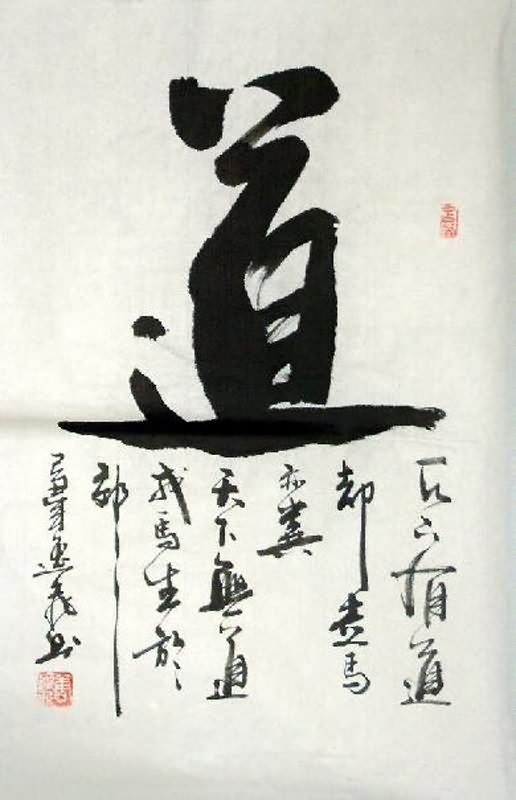 道
天下有道
却走馬
以糞
天下無道
戎馬生於
郊
書